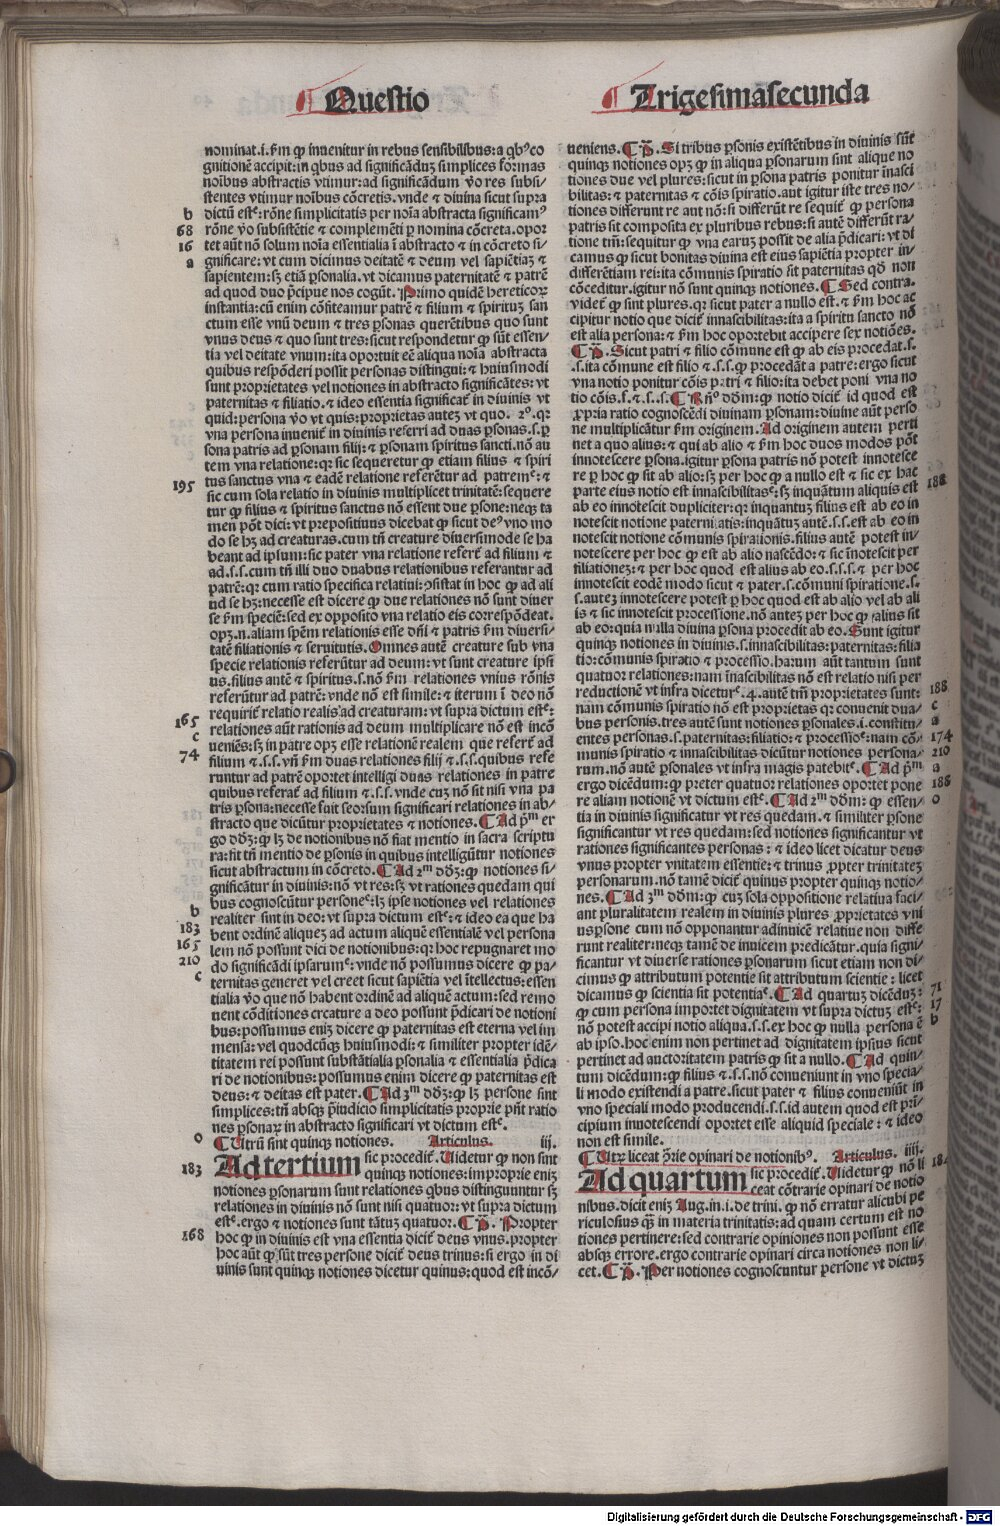 Questio
Trigesimasecunda
nominat.i.ẜm ꝙ inuenitur in rebus sensibilibus:a qbꝰco
gnitionē accipit:in qbus ad significādū simplices formas
noībus abstractis vtimur:ad significādum ꝟo res subsi/
stentes vtimur noībus cōcretis.vnde ⁊ diuina sicut supra
b
dictū estᶜ:rōne simplicitatis per noīa abstracta significamꝰ
68
rōne ꝟo subsistētie ⁊ complemēti ꝑ nomina concreta.opor
16
tet aūt nō solum noīa essentialia ī abstracto ⁊ in cōcreto si/
a
gnificare:vt cum dicimus deitatē ⁊ deum vel sapiētiaꝫ ⁊
sapientem:sꝫ etiā ꝑsonalia.vt dicamus paternitatē ⁊ patrē
ad quod duo p̄cipue nos cogūt. Primo quidē hereticoꝝ
instantia:cū enim cōfiteamur patrē ⁊ filium ⁊ spirituꝫ san
ctum esse vnū deum ⁊ tres ꝑsonas querētibus quo sunt
vnus deus ⁊ quo sunt tres:sicut respondetur ꝙ sūt essen/
tia vel deitate vnum:ita oportuit eē aliqua noīa abstracta
quibus respōderi possit personas distingui:⁊ huiusmodi
sunt proprietates vel notiones in abstracto significātes:vt
paternitas ⁊ filiatio.⁊ ideo essentia significat̄ in diuinis vt
quid:persona ꝟo vt quis:proprietas auteꝫ vt quo. 2º.qꝛ
vna persona inuenit̄ in diuinis referri ad duas ꝑsonas.s.ꝑ
sona patris ad ꝑsonam filij:⁊ ꝑsonam spiritus sancti.nō au
tem vna relatione:qꝛ sic sequeretur ꝙ etiam filius ⁊ spiri
195
tus sanctus vna ⁊ eadē relatione referētur ad patremᶜ:⁊
sic cum sola relatio in diuinis multiplicet trinitatē:sequere
tur ꝙ filius ⁊ spiritus sanctus nō essent due ꝑsone:neqꝫ ta
men pōt dici:vt prepositiuus dicebat ꝙ sicut deꝰ vno mo
do se hꝫ ad creaturas.cum tn̄ creature diuersimode se ha
beant ad ipsum:sic pater vna relatione refert̄ ad filium ⁊
ad.s.s.cum tn̄ illi duo duabus relationibus referantur ad
patrē:qꝛ cum ratio specifica relatiui:ꝯsistat in hoc ꝙ ad ali
ud se hꝫ:necesse est dicere ꝙ due relationes nō sunt diuer
se ẜm speciē:sed ex opposito vna relatio eis correspōdeat.
opꝫ.n.aliam spēm relationis esse dn̄i ⁊ patris ẜm diuersi/
tatē filiationis ⁊ seruitutis. Omnes autē creature sub vna
specie relationis referūtur ad deum:vt sunt creature ipsi
us.filius autē ⁊ spiritus.s.nō ẜm relationes vnius rōnis
referūtur ad patrē:vnde nō est simile:⁊ iterum ī deo nō
requirit̄ relatio realis ad creaturam:vt supra dictum estᶜ:
165
c
relationes aūt rationis ad deum multiplicare nō est incō
ueniēs:sꝫ in patre opꝫ esse relationē realem que refert̄ ad
74
filium ⁊ s.s.vn̄ ẜm duas relationes filij ⁊ s.s.quibus refe
runtur ad patrē oportet intelligi duas relationes in patre
quibus referat̄ ad filium ⁊ s.s.vnde cuꝫ nō sit nisi vna pa
tris ꝑsona:necesse fuit seorsum significari relationes in ab/
stracto que dicūtur proprietates ⁊ notiones. ¶ Ad pᵐ er
go dōꝫ:ꝙ lꝫ de notionibus nō fiat mentio in sacra scriptu
ra:fit tn̄ mentio de ꝑsonis in quibus intelligūtur notiones
sicut abstractum in cōcreto. ¶ Ad 2ᵐ dōꝫ:ꝙ notiones si/
gnificātur in diuinis:nō vt res:sꝫ vt rationes quedam qui
bus cognoscūtur personeᶜ:lꝫ ipse notiones vel relationes
b
realiter sint in deo:vt supra dictum estᶜ:⁊ ideo ea que ha
183
bent ordinē aliqueꝫ ad actum aliquē essentialē vel persona
165
lem nō possunt dici de notionibus:qꝛ hoc repugnaret mo
210
do significādi ipsarumᶜ:vnde nō possumus dicere ꝙ pa/
c
ternitas generet vel creet sicut sapiēs vel ītellectus:essen
tialia ꝟo que non habent ordinē ad aliquē actum:sed remo
uent cōditiones creature a deo possunt p̄dicari de notioni
bus:possumus eniꝫ dicere ꝙ paternitas est eterna vel im
mensa:vel quodcūqꝫ huiusmodi:⁊ similiter propter idē/
titatem rei possunt substātialia ꝑsonalia ⁊ essentialia p̄dica
ri de notionibus:possumus enim dicere ꝙ paternitas est
deus:⁊ deitas est pater. ¶ Ad 3ᵐ dōꝫ:ꝙ lꝫ persone sint
simplices:tn̄ absqꝫ p̄iudicio simplicitatis proprie pn̄t ratio
nes ꝑsonaꝝ in abstracto significari vt dictum estᶜ.
o
¶ Utrū sint quinqꝫ notiones. Articulus. iij.
183
Ad tertium sic procedit̄. Uidetur ꝙ non sint
quinqꝫ notiones:improprie eniꝫ
notiones ꝑsonarum sunt relationes qbus distinguuntur sꝫ
relationes in diuinis nō sunt nisi quatuor:vt supra dictum
estᶜ.ergo ⁊ notiones sunt tātuꝫ quatuor. ¶ P̄. Propter
168
hoc ꝙ in diuinis est vna essentia dicit̄ deus vnus.propter
hoc aūt ꝙ sūt tres persone dicit̄ deus trinus:si ergo in di
uinis sunt quinqꝫ notiones dicetur quinus:quod est incō/
ueniens. ¶ P̄. Si tribus ꝑsonis existētibus in diuinis sūt
quinqꝫ notiones opꝫ ꝙ in aliqua ꝑsonarum sint alique no
tiones due vel plures:sicut in ꝑsona patris ponitur īnasci
bilitas:⁊ paternitas ⁊ cōis spiratio.aut igitur iste tres no/
tiones differunt re aut nō:si differūt re sequit̄ ꝙ persona
patris sit composita ex pluribus rebus:si autē differūt ra/
tione tm̄:sequitur ꝙ vna earuꝫ possit de alia p̄dicari:vt di
camus ꝙ sicut bonitas diuina est eius sapiētia propter in/
differētiam rei:ita cōmunis spiratio sit paternitas qd̄ non
cōceditur.igitur nō sunt quinqꝫ notiones. ¶ Sed contra.
videt̄ ꝙ sint plures.qꝛ sicut pater a nullo est.⁊ ẜm hoc ac
cipitur notio que dicit̄ innascibilitas:ita a spiritu sancto nō
est alia persona:⁊ ẜm hoc oportebit accipere sex notiōes.
¶ P̄. Sicut patri ⁊ filio cōmune est ꝙ ab eis procedat.s.
.s.ita cōmune est filio ⁊ .s.s.ꝙ procedāt a patre:ergo sicut
vna notio ponitur cōis patri ⁊ filio:ita debet poni vna no
tio cōis.f.⁊ s.s. ¶ Rñº dōm:ꝙ notio dicit̄ id quod est
ꝓpria ratio cognoscēdi diuinam ꝑsonam:diuine aūt perso
ne multiplicātur ẜm originem. Ad originem autem perti
net a quo alius:⁊ qui ab alio ⁊ ẜm hoc duos modos pōt
innotescere ꝑsona.igitur ꝑsona patris nō potest innotesce
re ꝑ hoc ꝙ sit ab alio:sꝫ per hoc ꝙ a nullo est ⁊ sic ex hac
parte eius notio est innascibilitasᶜ:sꝫ inquātum aliquis est
188
ab eo innotescit dupliciter:qꝛ inquantuꝫ filius est ab eo in
notescit notione paternitatis:inquātuꝫ autē.s.s.est ab eo in
notescit notione cōmunis spirationis.filius autē potest in/
notescere per hoc ꝙ est ab alio nascēdo:⁊ sic īnotescit per
filiationeꝫ:⁊ per hoc quod est alius ab eo.s.s.s.⁊ per hoc
innotescit eodē modo sicut ⁊ pater.s.cōmuni spiratione.s.
s.auteꝫ innotescere potest ꝑ hoc quod est ab alio vel ab ali
is ⁊ sic innotescit processione.nō auteꝫ per hoc ꝙ alius sit
ab eo:quia nulla diuina ꝑsona procedit ab eo. Sunt igitur
quinqꝫ notiones in diuinis.s.innascibilitas:paternitas:filia
tio:cōmunis spiratio ⁊ processio.harum aūt tantum sunt
quatuor relationes:nam īnascibilitas nō est relatio nisi per
reductionē vt infra diceturᶜ.4.autē tm̄ proprietates sunt:
188
c
nam cōmunis spiratio nō est proprietas qꝛ conuenit dua/
a
bus personis.tres autē sunt notiones ꝑsonales.i.constitu/
entes personas.s.paternitas:filiatio:⁊ processioᶜ:nam cō/
174
munis spiratio ⁊ innascibilitas dicūtur notiones persona/
210
rum.nō autē ꝑsonales vt infra magis patebitᶜ. ¶ Ad pᵐ
a
ergo dicēdum:ꝙ preter quatuor relationes oportet pone
188
re aliam notionē vt dictum estᶜ. ¶ Ad 2ᵐ dōm:ꝙ essen/
o
tia in diuinis significatur vt res quedam.⁊ similiter ꝑsone
significantur vt res quedam:sed notiones significantur vt
rationes significantes personas:⁊ ideo licet dicatur deus
vnus propter vnitatem essentie:⁊ trinus ꝓpter trinitateꝫ
personarum.nō tamē dicit̄ quinus propter quinqꝫ notio/
nes. ¶ Ad 3ᵐ dōm:ꝙ cuꝫ sola oppositione relatiua faci/
ant pluralitatem realem in diuinis plures ꝓprietates vni
usꝑsone cum nō opponantur adinuicē relatiue non diffe
runt realiter:neqꝫ tamē de inuicem predicātur.quia signi/
ficantur vt diuerse rationes ꝑsonarum sicut etiam non di/
cimus ꝙ attributum potentie sit attributum scientie:licet
71
dicamus ꝙ scientia sit potentiaᶜ. ¶ Ad quartuꝫ dicēduꝫ:
17
ꝙ cum persona importet dignitatem vt supra dictuꝫ estᶜ:
b
nō potest accipi notio aliqua.s.s.ex hoc ꝙ nulla persona ē
ab ipso.hoc enim non pertinet ad dignitatem ipsius sicut
pertinet ad auctoritatem patris ꝙ sit a nullo. ¶ Ad quin/
tum dicēdum:ꝙ filius ⁊ .s.s.nō conueniunt in vno specia/
li modo existendi a patre.sicut pater ⁊ filius conueniūt in
vno speciali modo producendi.s.s.id autem quod est pri̅/
cipium innotescendi oportet esse aliquid speciale:⁊ ideo
non est simile.
¶ Utꝝ liceat ꝯ̄rie opinari de notionibꝰ. Articulus. iiij.
Ad quartum sic procedit̄. Uidetur ꝙ nō li
ceat cōtrarie opinari de notio
nibus.dicit eniꝫ Aug.in.i.de trini.ꝙ nō erratur alicubi pe
riculosius qꝫ̄ in materia trinitatis:ad quam certum est no
tiones pertinere:sed contrarie opiniones non possunt esse
absqꝫ errore.ergo contrarie opinari circa notiones non li/
cet. ¶ P̄. Per notiones cognoscuntur ꝑersone vt dictuꝫ
Digitalisierung gefördert durch die Deutsche Forschungsgemeinschaft - DFG